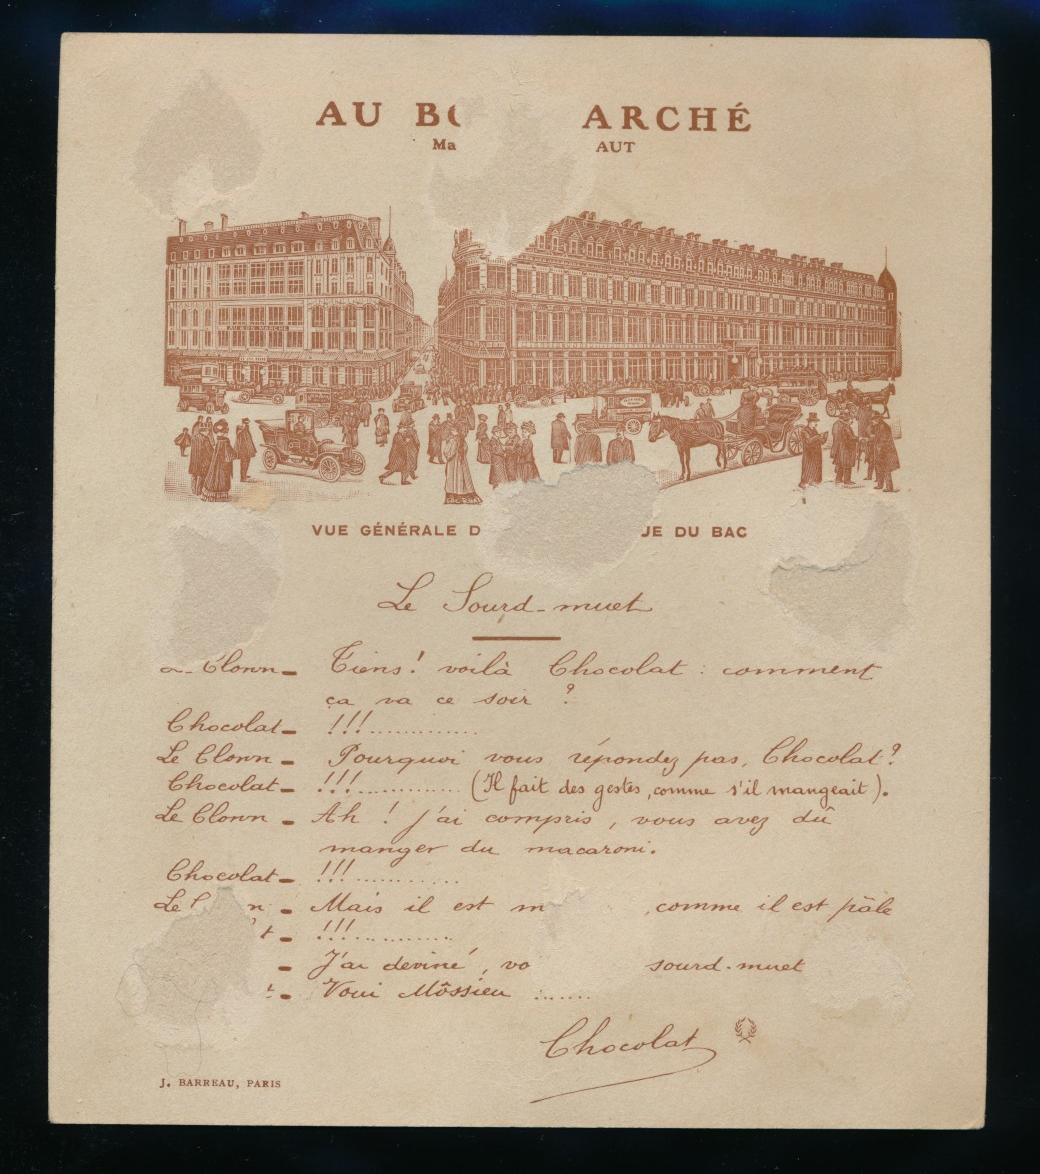 AU BO ARCHÉ
Ma AUT
AU BON MARCHÉ
VUE GÉNÉRALE D UE DU BAC
Le Sourd-muet
Clown - Tiens! voilà Chocolat : comment
ça va ce soir ?
Chocolat - !!!............
Le Clown - Pourquoi vous répondez pas, Chocolat?
Chocolat - !!!............ (Il fait des gestes, comme s'il mangeait).
Le Clown - Ah ! j'ai compris, vous avez dû
manger du macaroni.
Chocolat - !!!............
Le C n - Mais il est m , comme il est pâle
t - !!!............
- J'ai deviné, vo sourd-muet
t - Voui Môssieu ......
Chocolat
J. BARREAU, PARIS